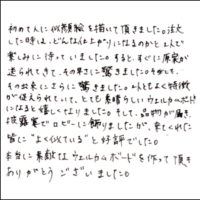 初めて人に似顔絵を描いて頂きました。注文
した時は、どんな仕上がりになるのかと2人で
楽しみに待っていました。すると、すぐに原案が
送られてきて、その早さに驚きました。そして、
その出来にさらに驚きました。2人ともよく特徴
が捉えられていて、とても素晴らしいウェルカムボード
になると嬉しくなりました。そして、品物が届き、
披露宴でロビーに飾りましたが、来てくれた
皆に"よく似ている"と好評でした。
本当に素敵なウェルカムボードを作って頂き
ありがとうございました。